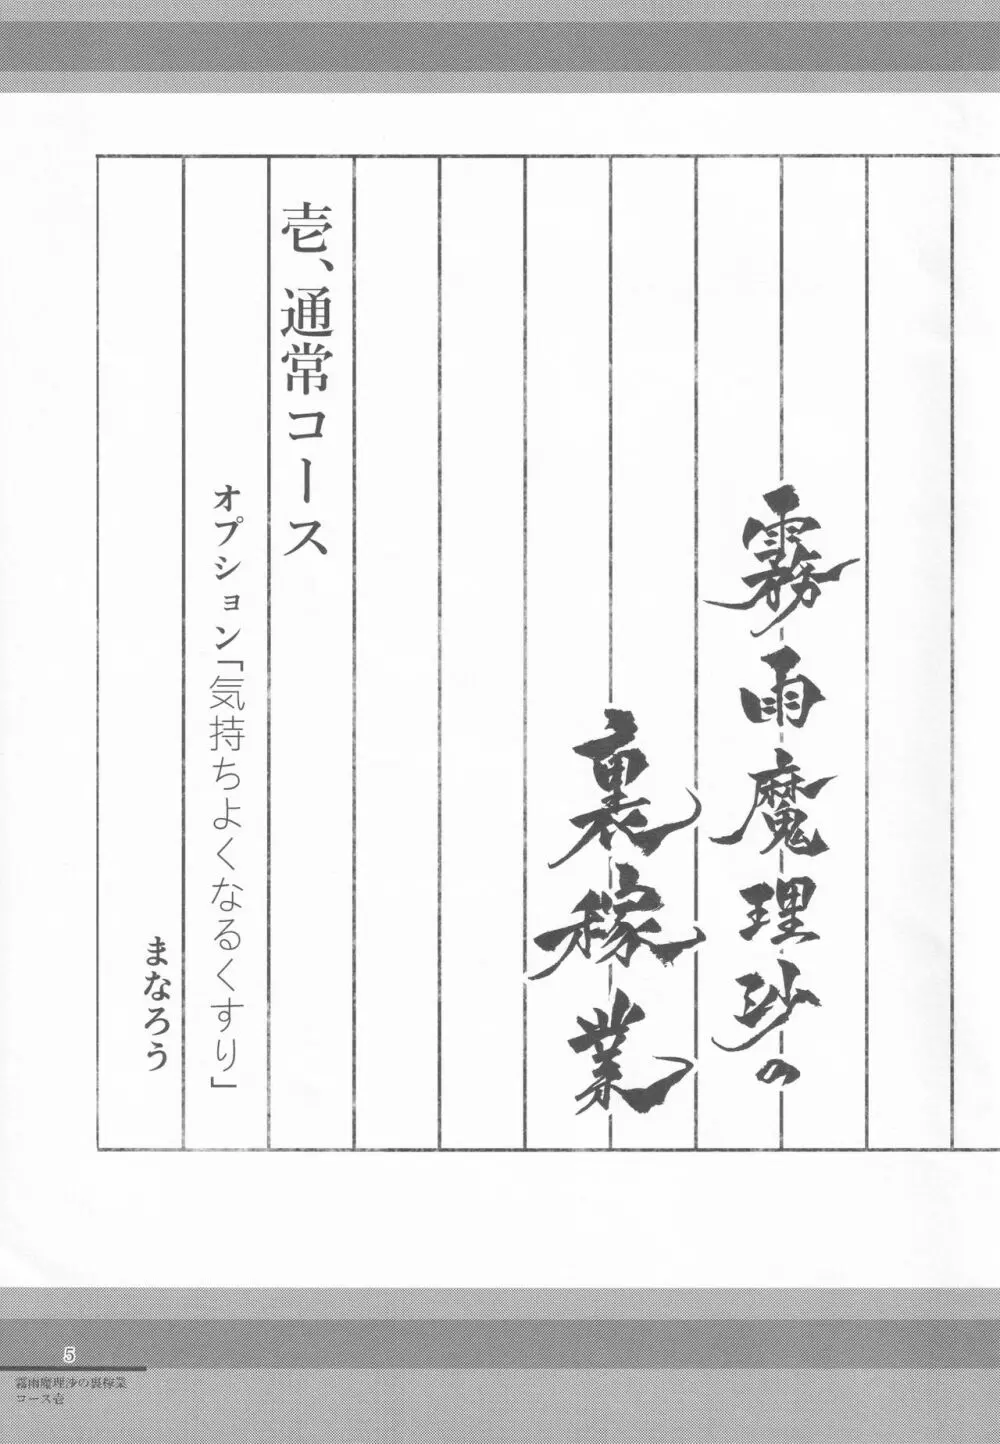 霧雨魔理沙の
裏稼業
壱、通常コース
オプション「気持ちよくなるくすり」
まなろう
5
霧雨魔理沙の裏稼業
コース壱